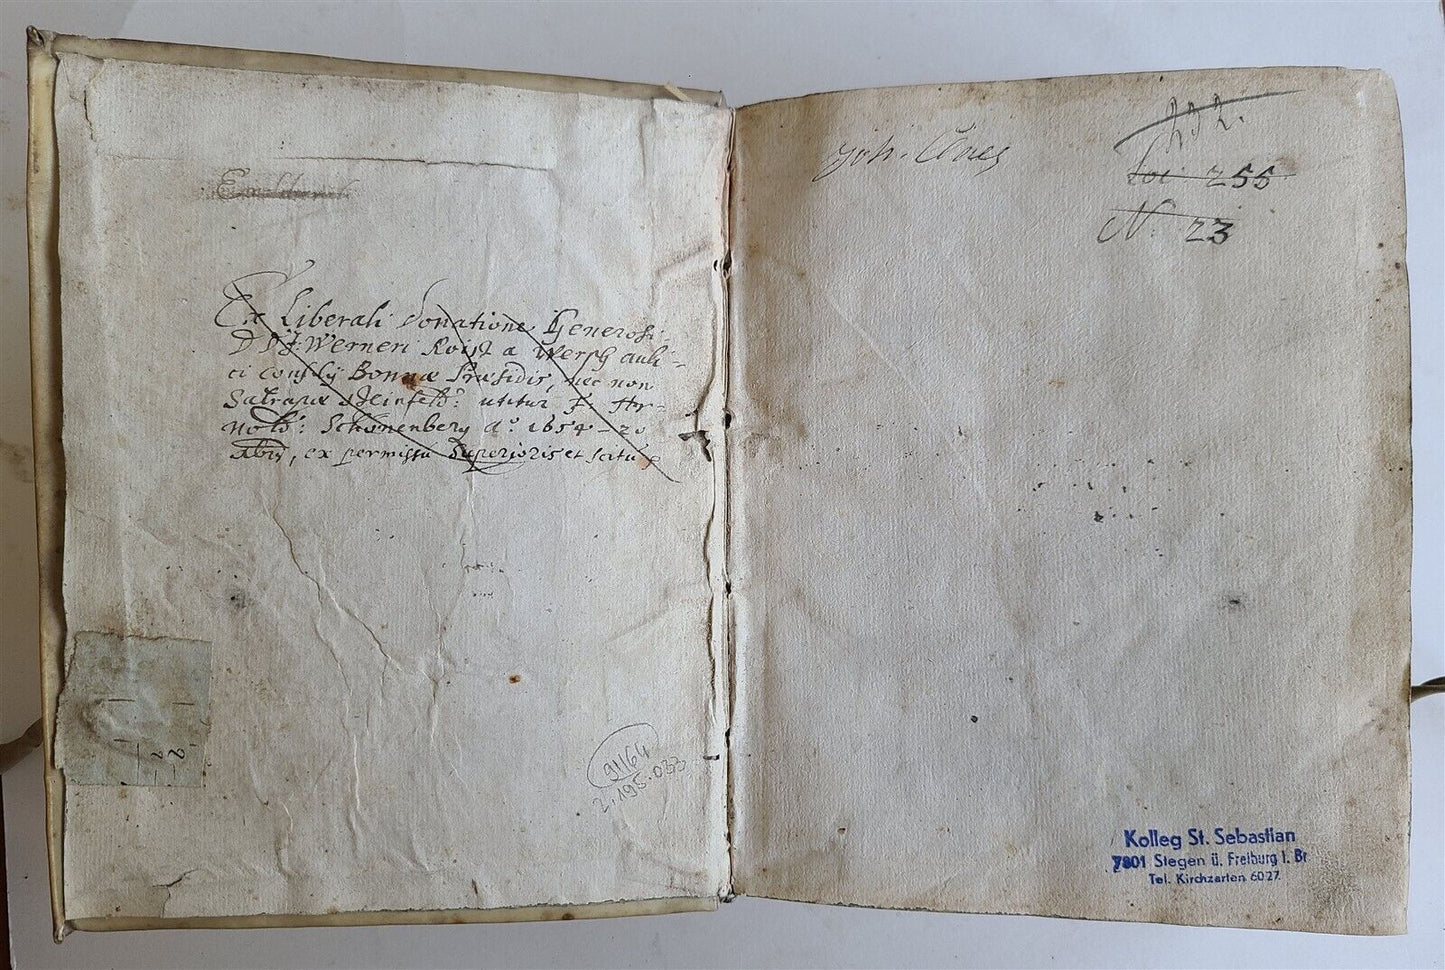 Ex Liberali donatione Generosi
D D J Werneri a auli-
ci Bonnae Praesidis, nec non
Satrapae utitur F. Ar-
nold: Schönenberg aº 1654 - 20
Xbris, ex permissu Superioris et scitu
91164
2.195.033
Joh.
232.
Loc 255
N. 23
Kolleg St. Sebastian
7801 Stegen ü. Freiburg i. Br
Tel. Kirchzarten 6027